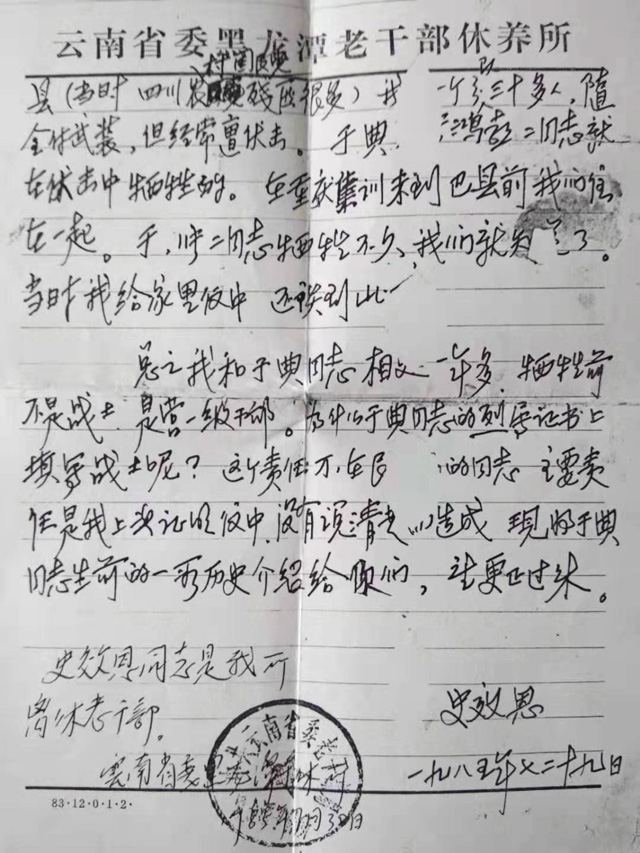 云南省委黑龙潭老干部休养所
县（当时四川农村国民党残匪很多）我 一个队三十多人，随
全付武装，但经常遭伏击。于典 二同志就
在伏击中牺牲的。在重庆集训来到巴县前我们住
在一起。于，冲二同志牺牲不久，我们就 了。
当时我给家里信中还谈到此
总之我和于典同志相交一年多，牺牲前
不是战士 是营一级干部。为什么于典同志的烈军证书上
填写战士呢？这个责任不在民 的同志 主要责
任是我上次证明信中没有说清 造成 现将于典
同志生前的一段历史介绍给你们，请更正过来。
史效恩同志是我所
离休老干部。
史效恩
云南省委黑龙潭休
一九八五年七二十九日
云南省委老
83·12·0·1·2·